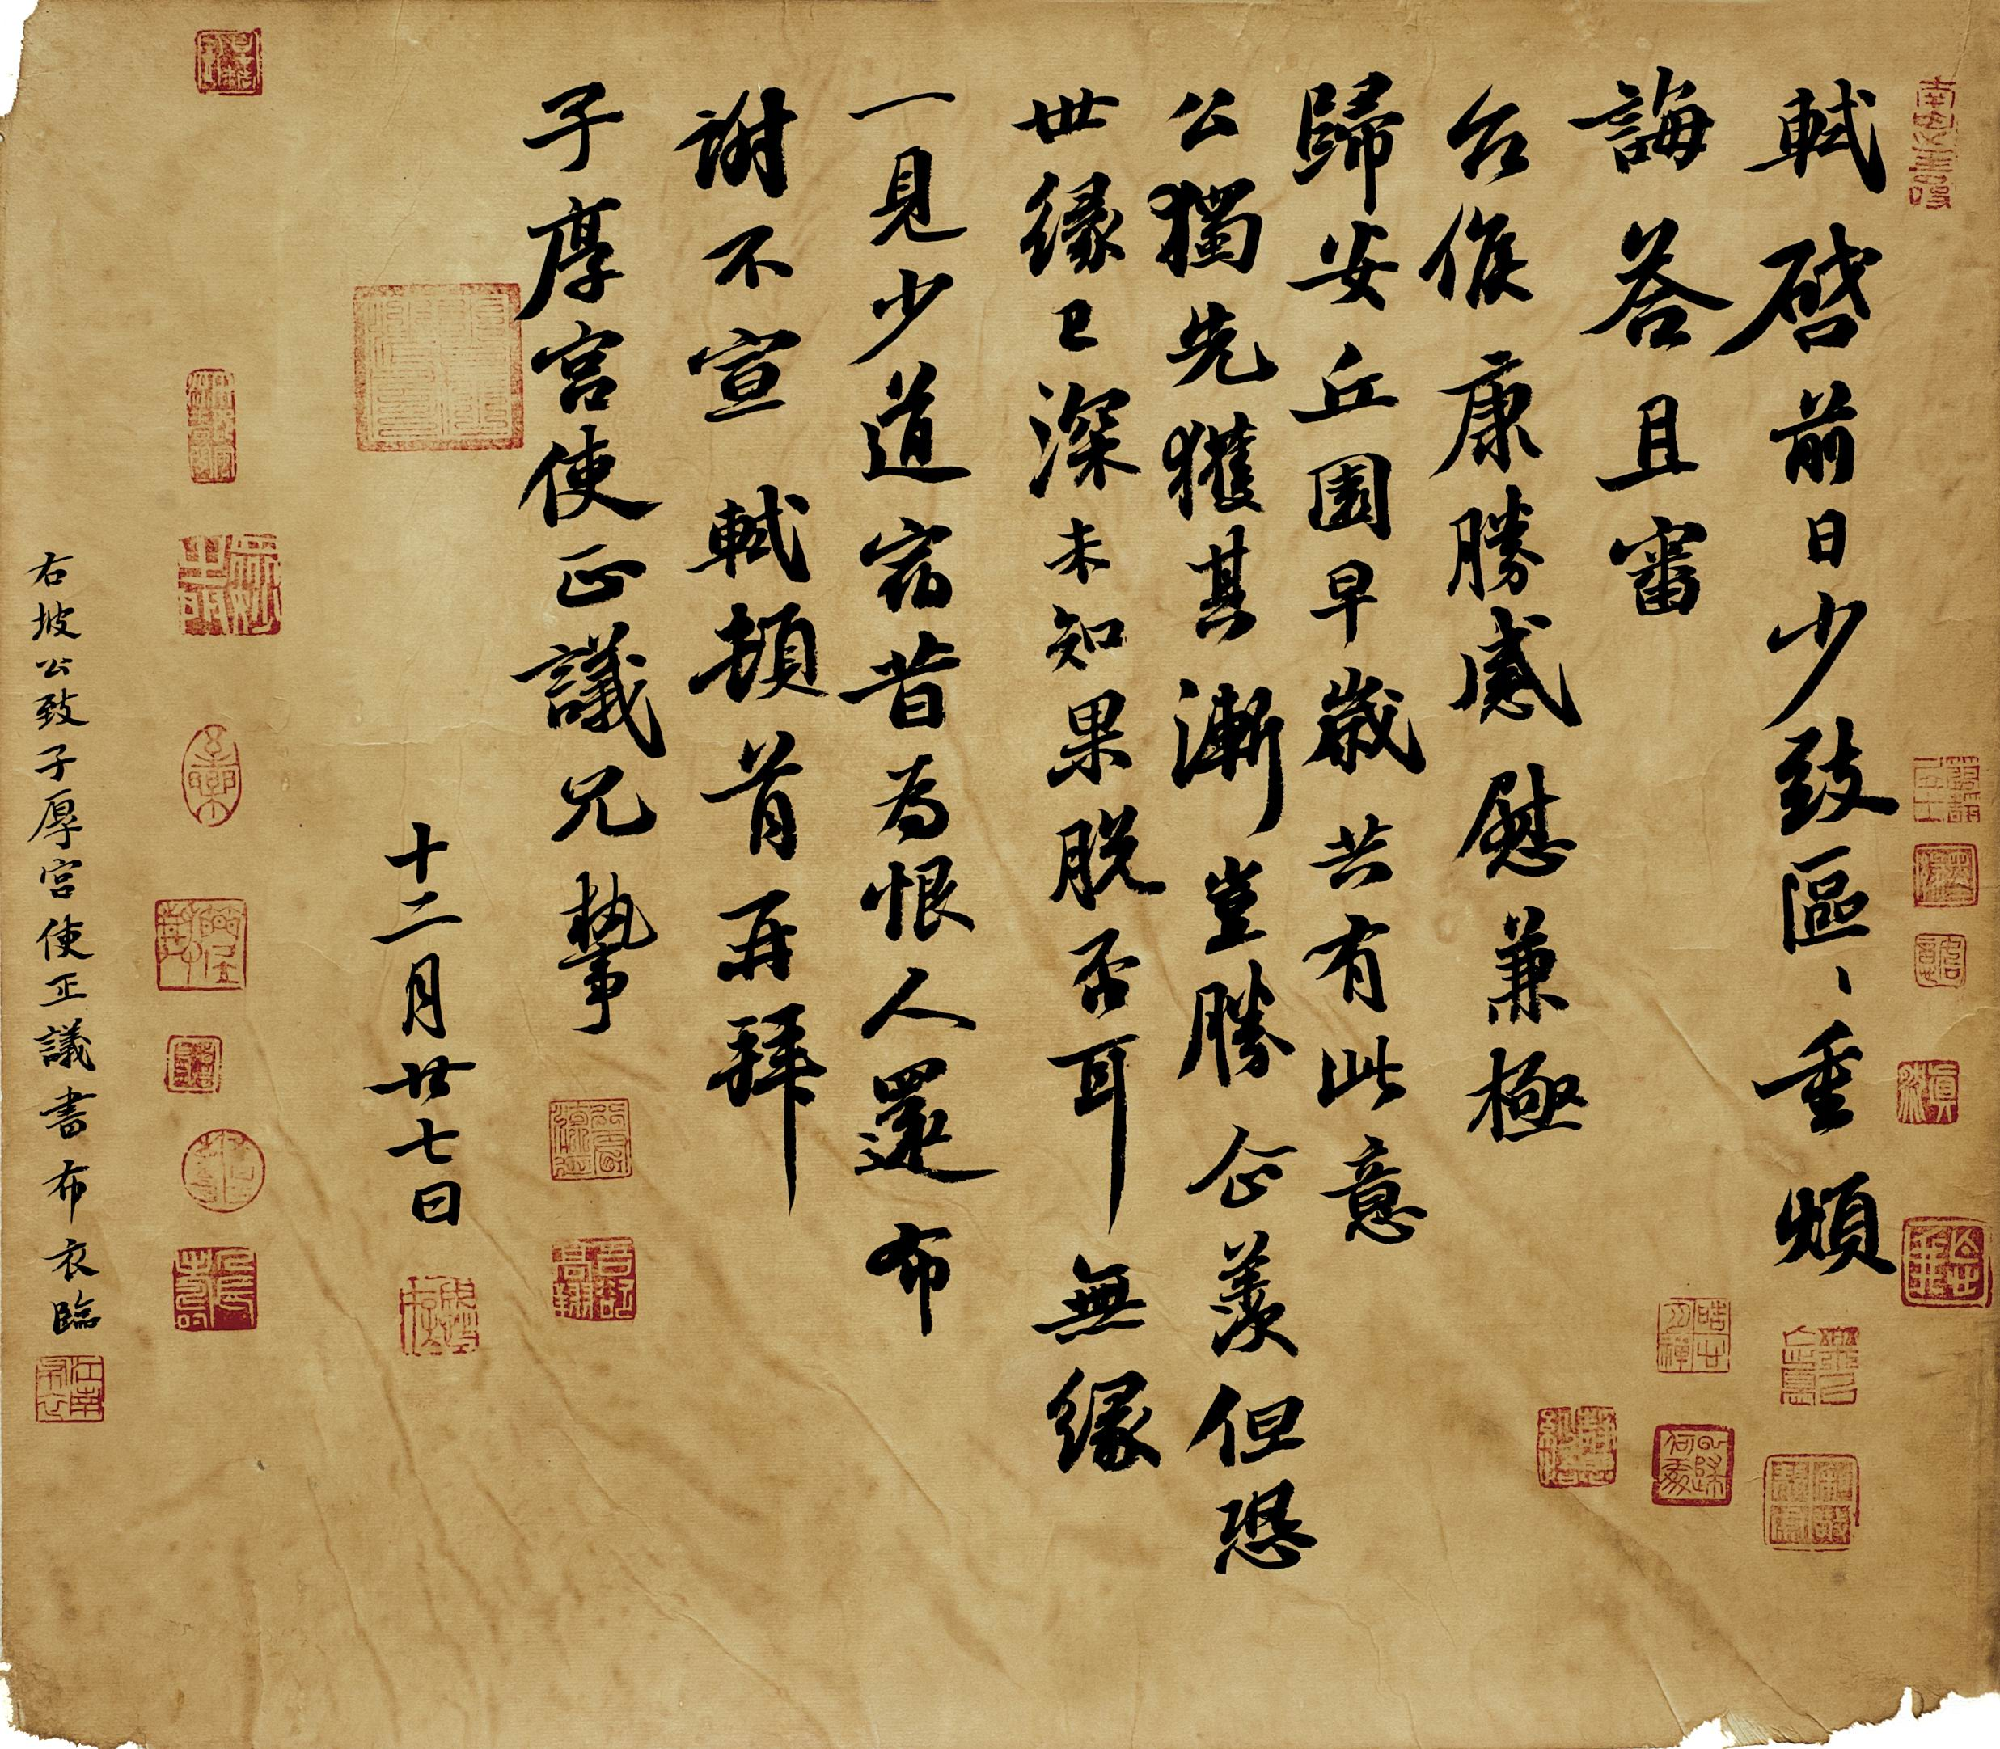 軾啓前日少致區、重煩
誨荅且審
台候康勝感慰兼極
歸安丘園早歲共有此意
公獨先獲其漸豈勝企羨但恐
世緣已深未知果脫否耳無緣
一見少道宿昔為恨人還布
謝不宣 軾頓首再拜
子厚宮使正議兄執事
十二月廿七日
右坡公致子厚宮使正議書布衣臨